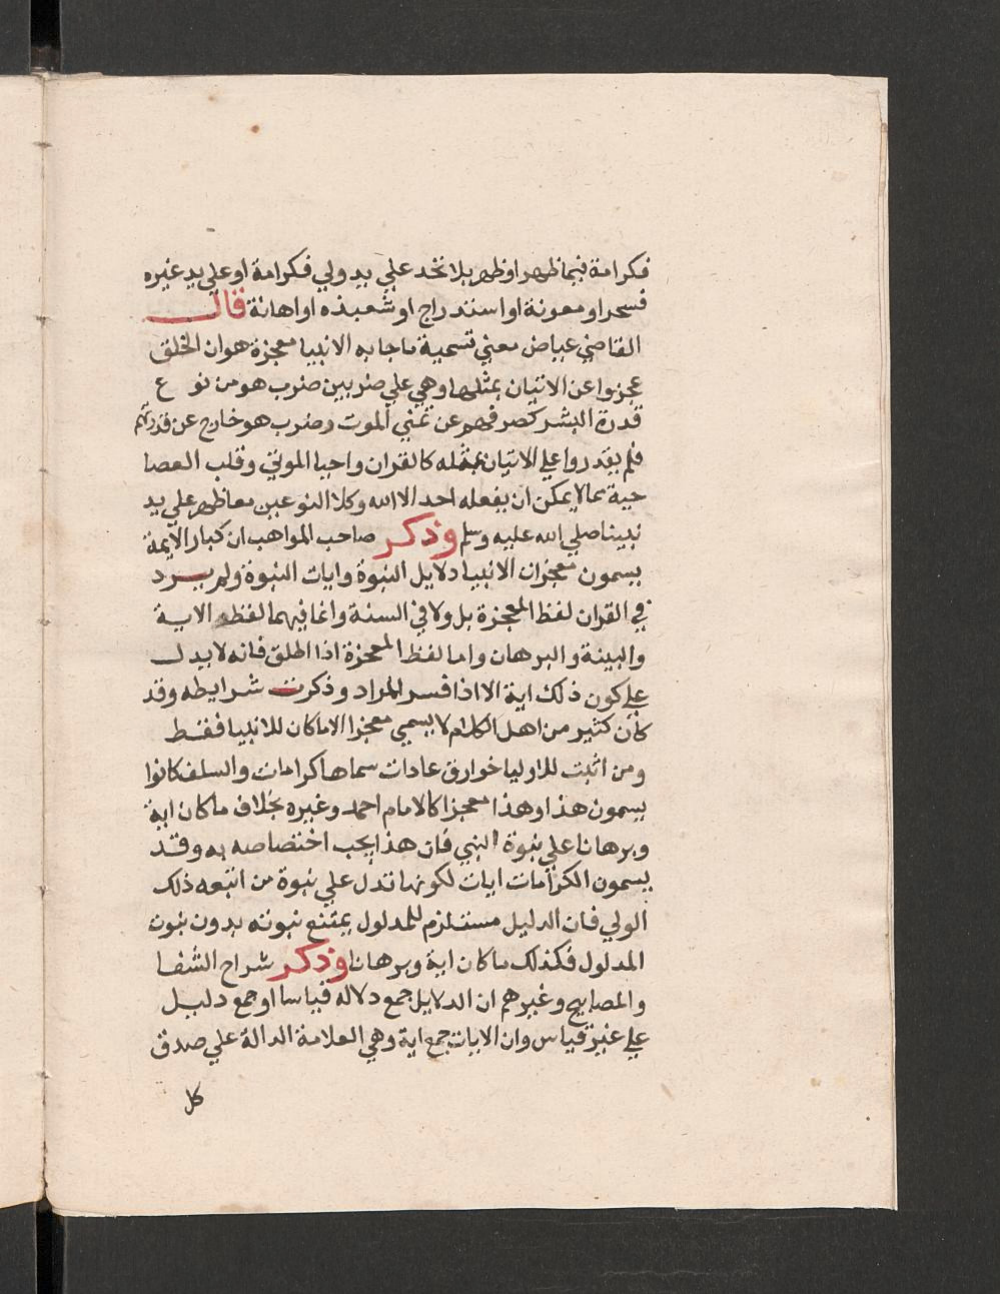 فكرامة فيما ظهر او ظهر بلا تحد علي يد ولي فكرامة او علي يد غيره
فسحر او معونة او استدراج او شعبذه او اهانة قال
القاضي عياض معني تسمية ما جا به الانبيا معجزة هو ان الخلق
عجزوا عن الاتيان بمثلها وهي علي ضربين ضرب هو من نوع
قدرة البشر كصرفهم عن تمني الموت وضرب هو خارج عن قدرتهم
فلم يقدروا علي الاتيان بمثله كالقران واحيا الموتي وقلب العصا
حية مما لا يمكن ان يفعله احد الا الله وكلا النوعين مما ظهر علي يد
نبينا صلي الله عليه وسلم وذكر صاحب المواهب ان كبار الايمة
يسمون معجزات الانبيا دلايل النبوة وايات النبوة ولم يرد
في القران لفظ المعجزة بل ولا في السنة وانما فيهما لفظ الاية
والبينة والبرهان واما لفظ المعجزة اذا اطلق فانه لا يدل
علي كون ذلك اية الا اذا فسر المراد وذكرت شرايطه وقد
كان كثير من اهل الكلام لا يسمي معجزا الا ما كان للانبيا فقط
ومن اثبت للاوليا خوارق عادات سماها كرامات والسلف كانوا
يسمون هذا وهذا معجزا كالامام احمد وغيره بخلاف ما كان اية
وبرهانا علي نبوة النبي فان هذا يجب اختصاصه به وقد
يسمون الكرامات ايات لكونها تدل علي نبوة من اتبعه ذلك
الولي فان الدليل مستلزم للمدلول يمتنع ثبوته بدون ثبوت
المدلول فكذلك ما كان اية وبرهانا وذكر شراح الشفا
والمصابيح وغيرهم ان الدلايل جمع دلاله قياسا او جمع دليل
علي غير قياس وان الايات جمع اية وهي العلامة الدالة علي صدق
كل